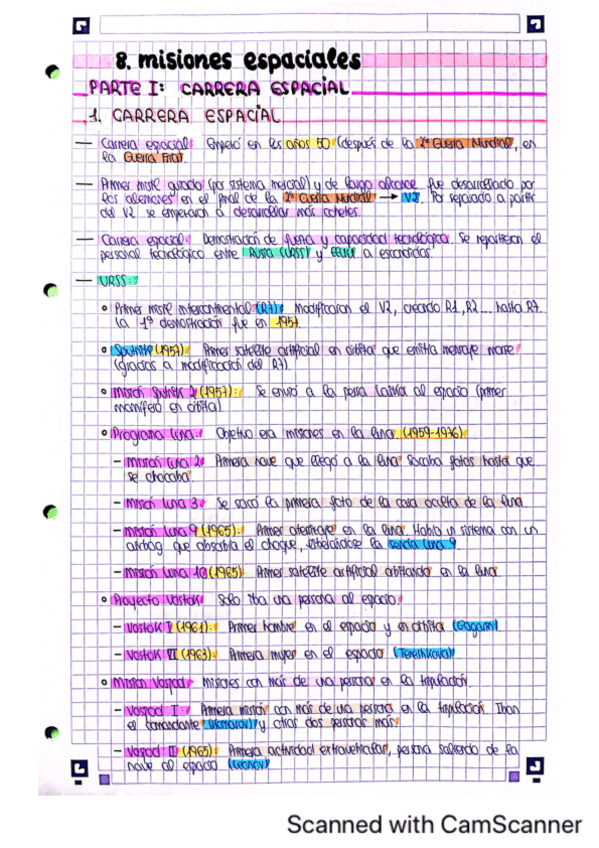 8. misiones espaciales
PARTE I: CARRERA ESPACIAL
1. CARRERA ESPACIAL
— Carrera espacial: Empezó en los años 50 (después de la 2ª Guerra Mundial, en
la Guerra Fría).
— Primer misil guiado (por sistema inercial) y de largo alcance fue desarrollado por
los alemanes en el final de la 2ª Guerra Mundial → V2. Por separado a partir
del V2 se empezaron a desarrollar más cohetes.
— Carrera espacial: Demostración de fuerza y capacidad tecnológica. Se repartieron el
personal tecnológico entre Rusia (URSS) y EEUU a escondidas.
— URSS:
• Primer misil intercontinental (R7): Modificaron el V2, creando R1, R2... hasta R7.
La 1ª demostración fue en 1957.
• Sputnik (1957): Primer satélite artificial en órbita que emitía mensaje morse
(gracias a modificación del R7).
• Misión Sputnik 2 (1957): Se envió a la perra Laika al espacio (primer
mamífero en órbita)
• Programa Luna: Objetivo era misiones en la luna (1959-1976)
– Misión Luna 2: Primera nave que llegó a la luna. Sacaba fotos hasta que
se chocaba.
– Misión Luna 3: Se sacó la primera foto de la cara oculta de la luna.
– Misión Luna 9 (1965): Primer aterrizaje en la luna. Había un sistema con un
airbag que absorbía el choque, liberándose la sonda Luna 9.
– Misión Luna 10 (1965): Primer satélite artificial orbitando en la luna.
• Proyecto Vostok: Solo iba una persona al espacio.
– Vostok I (1961): Primer hombre en el espacio y en órbita (Gagarin)
– Vostok VI (1963): Primera mujer en el espacio (Tereshkova)
• Misión Vosjod: Misiones con más de una persona en la tripulación.
– Vosjod I: Primera misión con más de una persona en la tripulación. Iban
el comandante (Komarov) y otras dos personas más.
– Vosjod II (1965): Primera actividad extravehicular, persona saliendo de la
nave al espacio (Leonov)
Scanned with CamScanner